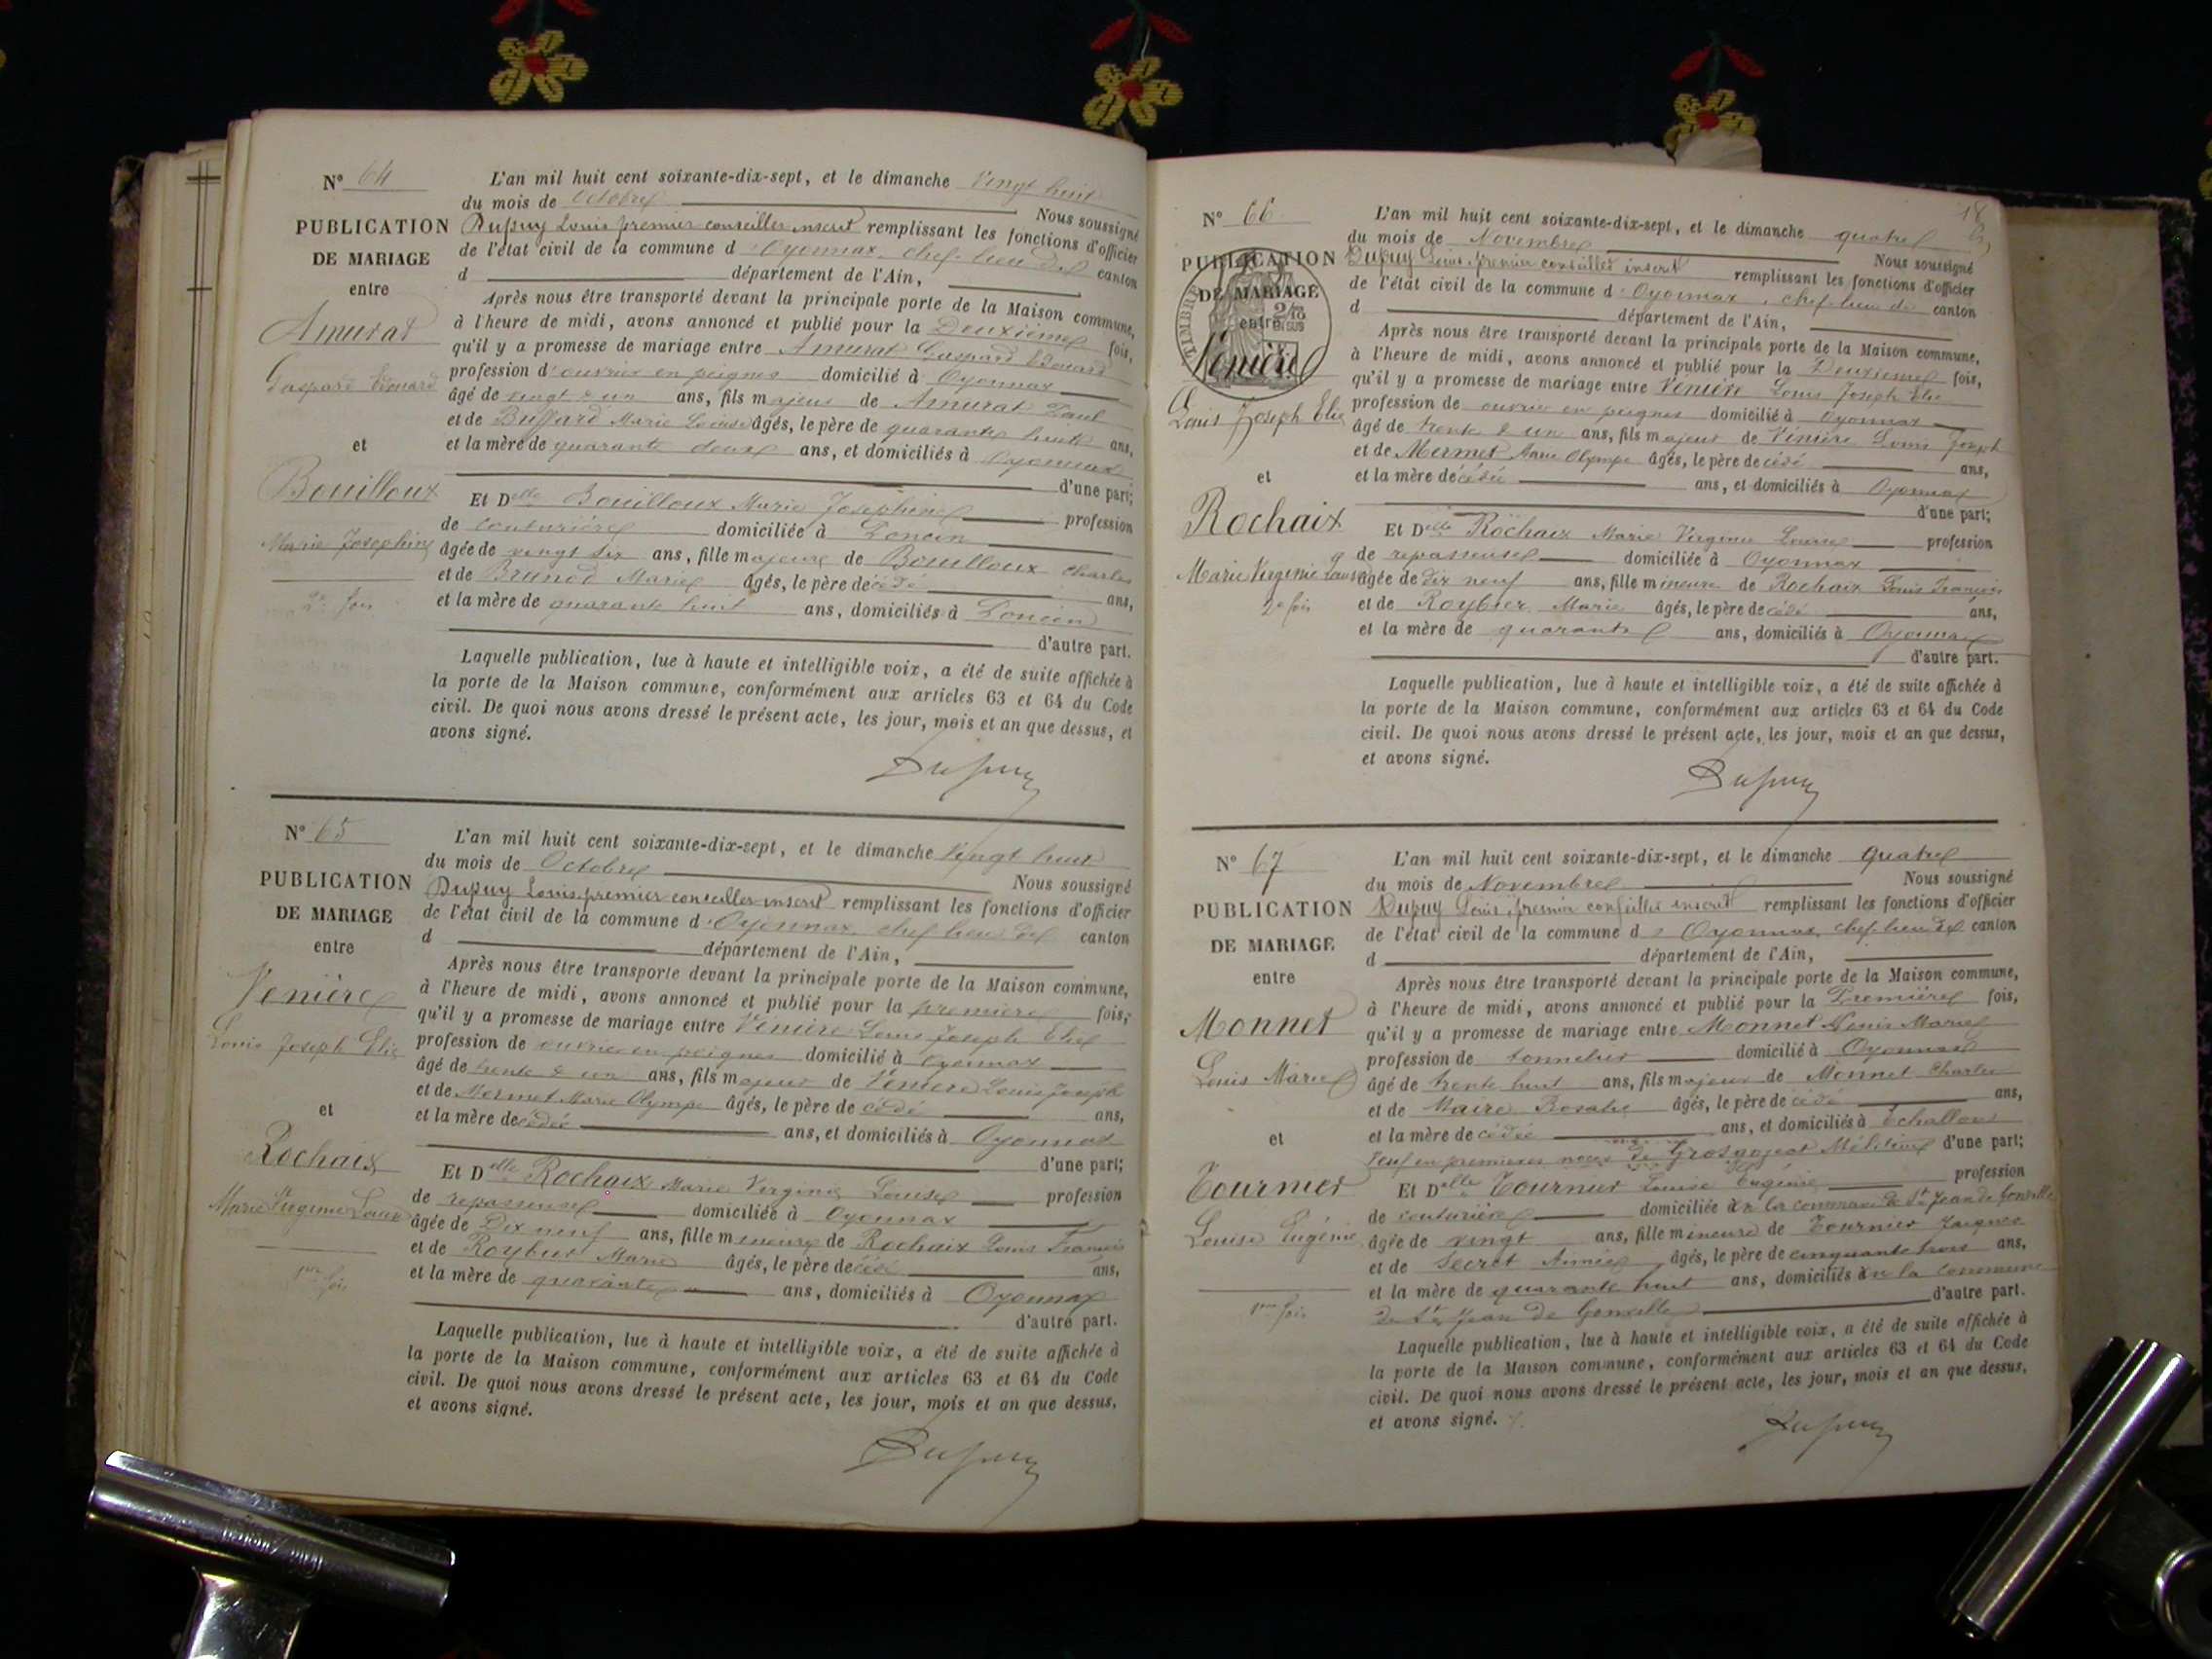 N° 64
PUBLICATION
DE MARIAGE
entre
Amurat
Gaspard Edouard
et
Bouilloux
Marie Josephine
2e fois
L'an mil huit cent soixante-dix-sept, et le dimanche vingt huit
du mois de Octobre Nous soussigné
Dupuy Louis premier conseiller inscrit remplissant les fonctions d'officier
de l'état civil de la commune d'Oyonnax, chef-lieu de canton
d département de l'Ain,
Après nous être transporté devant la principale porte de la Maison commune,
à l'heure de midi, avons annoncé et publié pour la Deuxième fois,
qu'il y a promesse de mariage entre Amurat Gaspard Edouard
profession d'ouvrier en peignes domicilié à Oyonnax
âgé de vingt & un ans, fils majeur de Amurat Paul
et de Buffard Marie Louise âgés, le père de quarante huit ans,
et la mère de quarante deux ans, et domiciliés à Oyonnax
d'une part;
Et Delle Bouilloux Marie Josephine profession
de couturière domiciliée à Doncin
âgée de vingt six ans, fille majeure de Bouilloux Charles
et de Brunod Marie âgés, le père décédé ans,
et la mère de quarante huit ans, domiciliés à Doncin
d'autre part.
Laquelle publication, lue à haute et intelligible voix, a été de suite affichée à
la porte de la Maison commune, conformément aux articles 63 et 64 du Code
civil. De quoi nous avons dressé le présent acte, les jour, mois et an que dessus, et
avons signé.
Dupuy
N° 65
PUBLICATION
DE MARIAGE
entre
Venière
Louis Joseph Elie
et
Rochaix
Marie Virginie Louise
1re fois
L'an mil huit cent soixante-dix-sept, et le dimanche vingt huit
du mois de Octobre Nous soussigné
Dupuy Louis, premier conseiller inscrit remplissant les fonctions d'officier
de l'état civil de la commune d'Oyonnax, chef lieu de canton
d département de l'Ain,
Après nous être transporté devant la principale porte de la Maison commune,
à l'heure de midi, avons annoncé et publié pour la première fois,
qu'il y a promesse de mariage entre Venière Louis Joseph Elie
profession de ouvrier en peignes domicilié à Oyonnax
âgé de trente & un ans, fils majeur de Venière Louis Joseph
et de Mermet Marie Olympe âgés, le père décédé ans,
et la mère décédée ans, et domiciliés à Oyonnax
d'une part;
Et Delle Rochaix Marie Virginie Louise profession
de repasseuse domiciliée à Oyonnax
âgée de Dix neuf ans, fille mineure de Rochaix Louis François
et de Roybier Marie âgés, le père décédé ans,
et la mère de quarante ans, domiciliés à Oyonnax
d'autre part.
Laquelle publication, lue à haute et intelligible voix, a été de suite affichée à
la porte de la Maison commune, conformément aux articles 63 et 64 du Code
civil. De quoi nous avons dressé le présent acte, les jour, mois et an que dessus,
et avons signé.
Dupuy
18
N° 66
PUBLICATION
DE MARIAGE
entre
TIMBRE
2/10
EN SUS
Venière
Louis Joseph Elie
et
Rochaix
Marie Virginie Louise
2e fois
L'an mil huit cent soixante-dix-sept, et le dimanche quatre
du mois de Novembre Nous soussigné
Dupuy Louis, premier conseiller inscrit remplissant les fonctions d'officier
de l'état civil de la commune d'Oyonnax, chef-lieu de canton
d département de l'Ain,
Après nous être transporté devant la principale porte de la Maison commune,
à l'heure de midi, avons annoncé et publié pour la Deuxième fois,
qu'il y a promesse de mariage entre Venière Louis Joseph Elie
profession de ouvrier en peignes domicilié à Oyonnax
âgé de trente & un ans, fils majeur de Venière Louis Joseph
et de Mermet Marie Olympe âgés, le père décédé ans,
et la mère décédée ans, et domiciliés à Oyonnax
d'une part;
Et Delle Rochaix Marie Virginie Louise profession
de repasseuse domiciliée à Oyonnax
âgée de dix neuf ans, fille mineure de Rochaix Louis François
et de Roybier Marie âgés, le père décédé ans,
et la mère de quarante ans, domiciliés à Oyonnax
d'autre part.
Laquelle publication, lue à haute et intelligible voix, a été de suite affichée à
la porte de la Maison commune, conformément aux articles 63 et 64 du Code
civil. De quoi nous avons dressé le présent acte, les jour, mois et an que dessus,
et avons signé.
Dupuy
N° 67
PUBLICATION
DE MARIAGE
entre
Monnet
Louis Marie
et
Tournier
Louise Eugénie
1re fois
L'an mil huit cent soixante-dix-sept, et le dimanche quatre
du mois de Novembre Nous soussigné
Dupuy Louis, premier conseiller inscrit remplissant les fonctions d'officier
de l'état civil de la commune d'Oyonnax, chef-lieu de canton
d département de l'Ain,
Après nous être transporté devant la principale porte de la Maison commune,
à l'heure de midi, avons annoncé et publié pour la Première fois,
qu'il y a promesse de mariage entre Monnet Louis Marie
profession de tonnelier domicilié à Oyonnax
âgé de trente huit ans, fils majeur de Monnet Charles
et de Maire Rosalie âgés, le père décédé ans,
et la mère décédée ans, et domiciliés à Echallon
veuf en premières noces de Grosgojeat Mélitine d'une part;
Et Delle Tournier Louise Eugénie profession
de couturière domiciliée en la commune de St Jean de Gonville
âgée de vingt ans, fille mineure de Tournier Jacques
et de Secret Aimée âgés, le père de cinquante trois ans,
et la mère de quarante huit ans, domiciliés en la commune
de St Jean de Gonville d'autre part.
Laquelle publication, lue à haute et intelligible voix, a été de suite affichée à
la porte de la Maison commune, conformément aux articles 63 et 64 du Code
civil. De quoi nous avons dressé le présent acte, les jour, mois et an que dessus,
et avons signé.
Dupuy